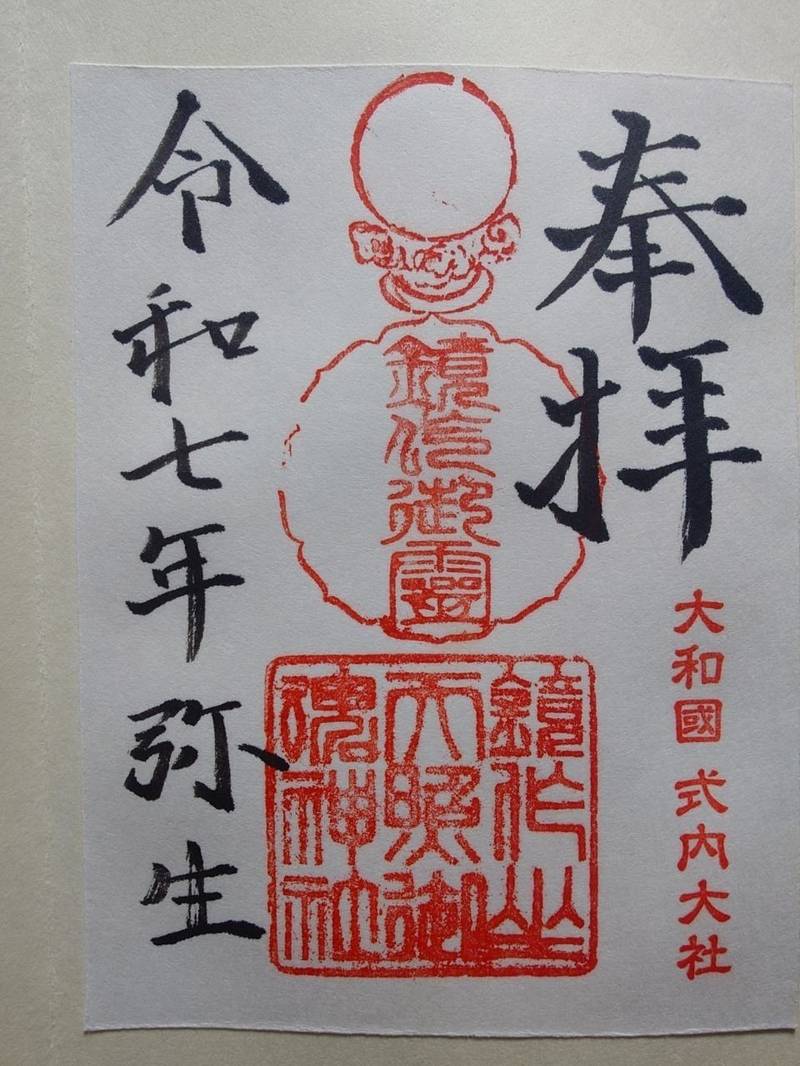 奉拝
大和國 式内大社
鏡作御靈
鏡作坐
天照御
魂神社
令和七年弥生